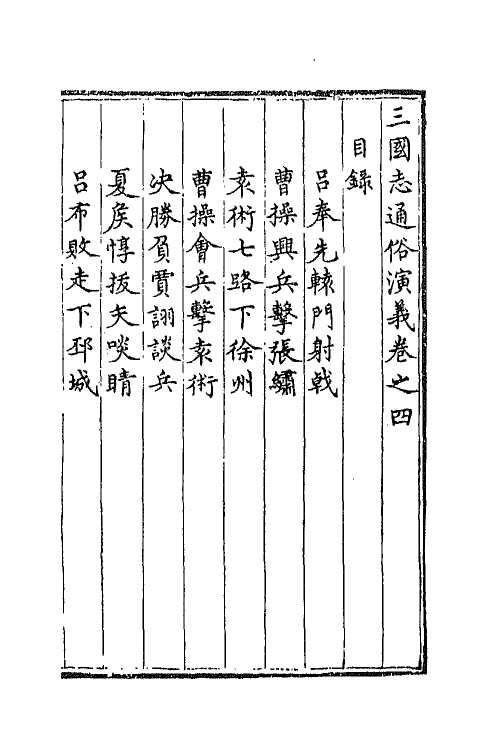 三國志通俗演義卷之四
目録
呂奉先轅門射戟
曹操興兵擊張繡
袁術七路下徐州
曹操會兵擊袁術
决勝負賈詡談兵
夏侯惇拔矢啖睛
呂布敗走下邳城